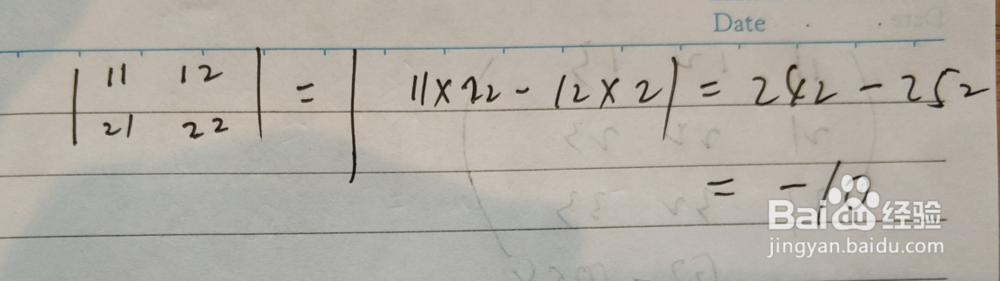 Date
| 11 12 | = | 11×22 - 12×21 = 242 - 252
21 22
= -10
Baidu 经验
jingyan.baidu.com